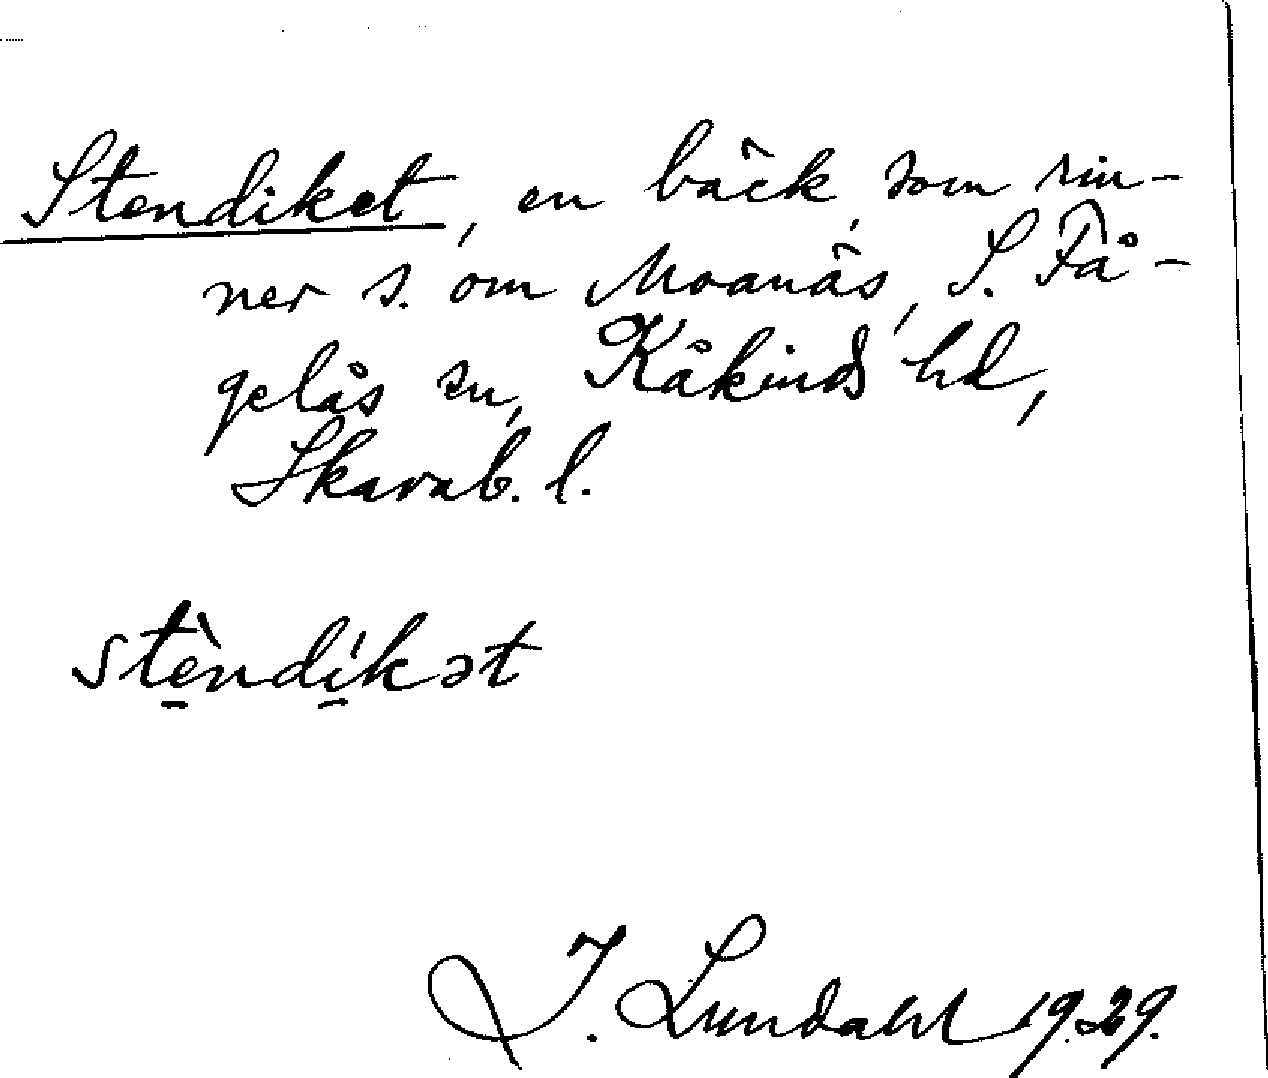 Stendiket, en bäck, som rin-
ner s. om Moanäs, S. Få-
gelås sn, Kåkinds hd,
Skarab. l.
stè̠ndí̠kət
I. Lundahl 1929.